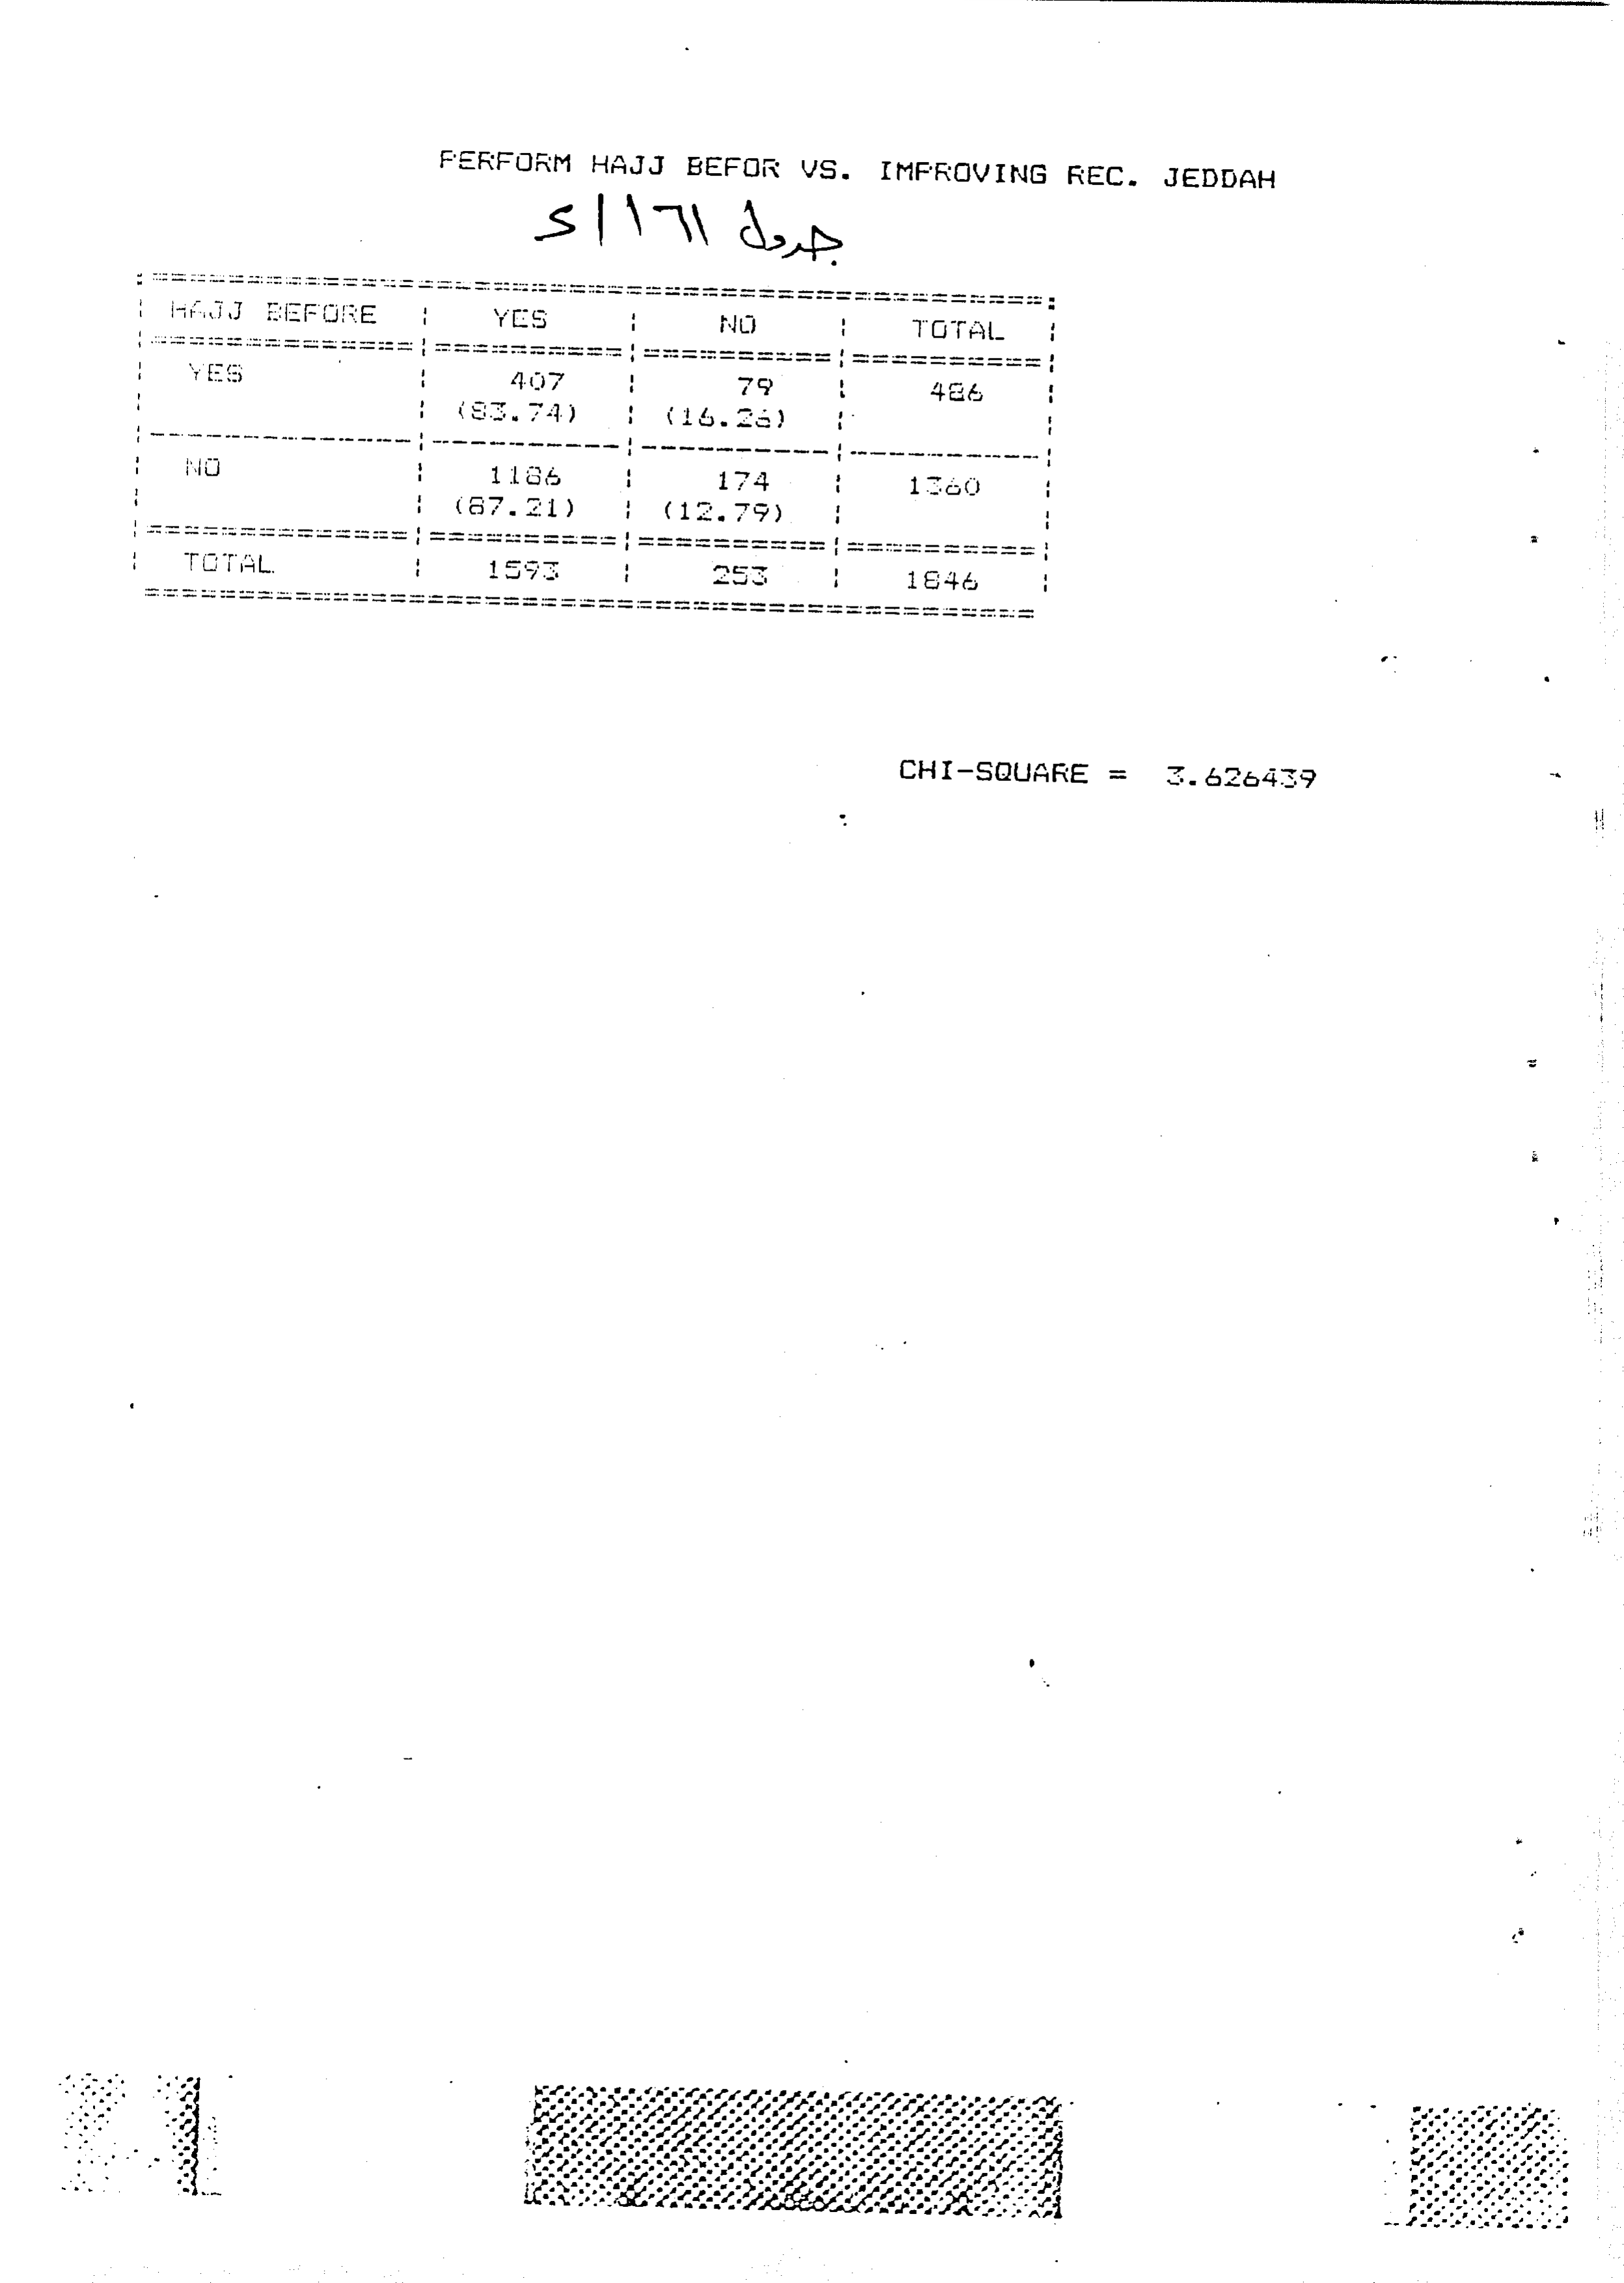 PERFORM HAJJ BEFOR VS. IMPROVING REC. JEDDAH
جدول ١٦١/د
HAJJ BEFORE | YES | NO | TOTAL
YES | 407 | 79 | 486
(83.74) | (16.26)
NO | 1186 | 174 | 1360
(87.21) | (12.79)
TOTAL | 1593 | 253 | 1846
CHI-SQUARE = 3.626439